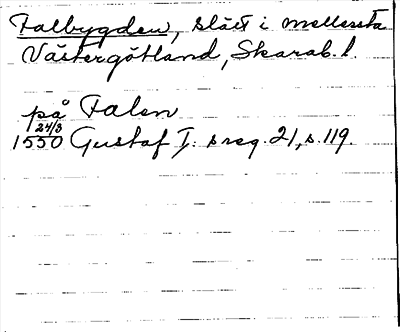 Falbygden, slätt i mellersta
Västergötland, Skarab. l.
på Falen
24/3
1550 Gustaf I:s reg. 21, s. 119.